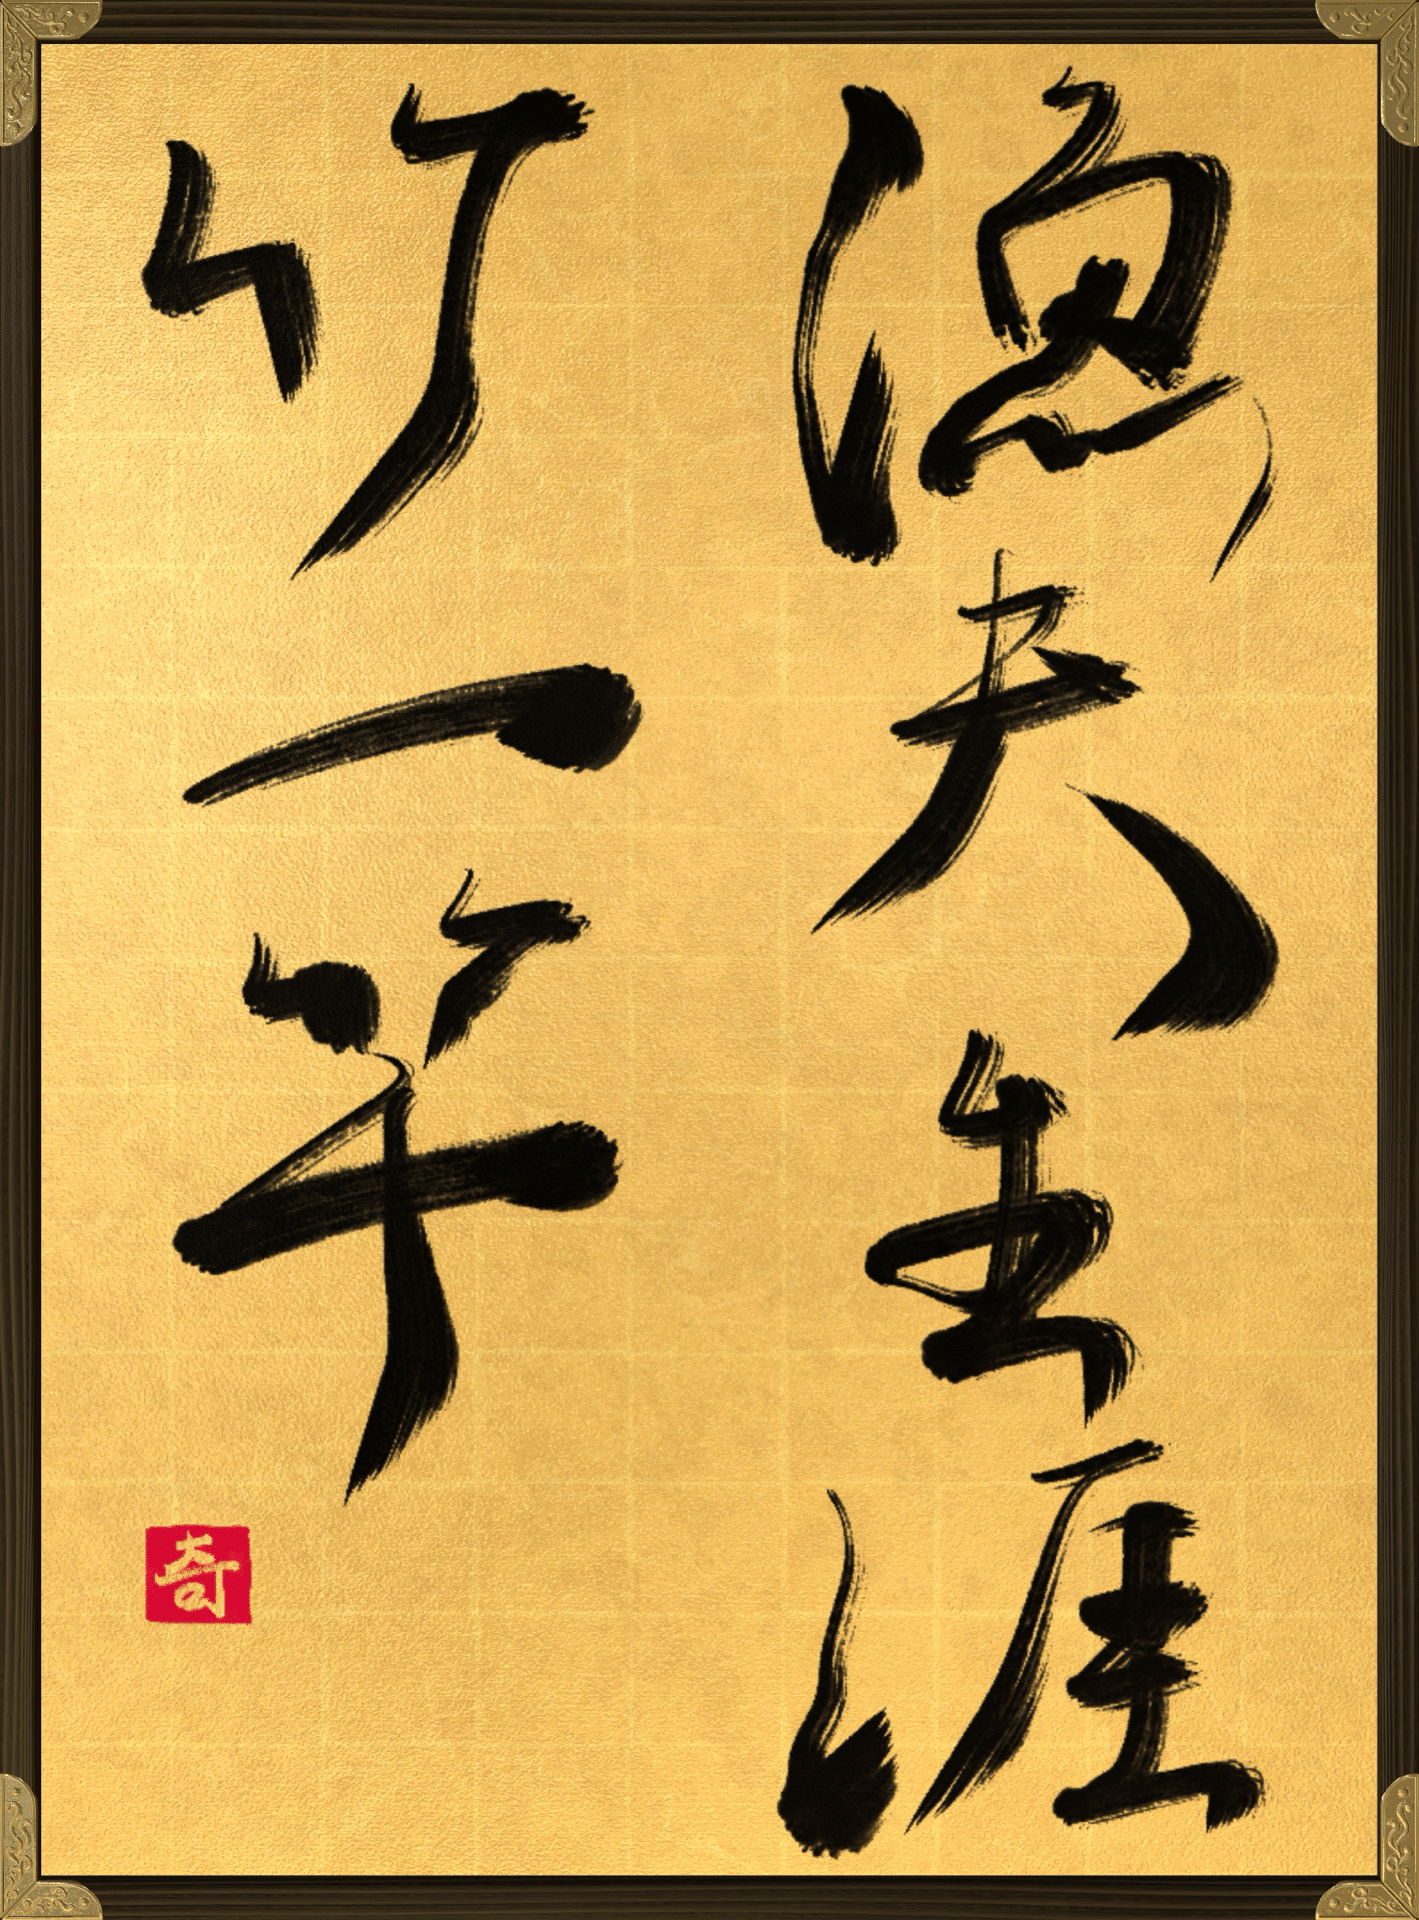 漁夫生涯
竹一竿
奇